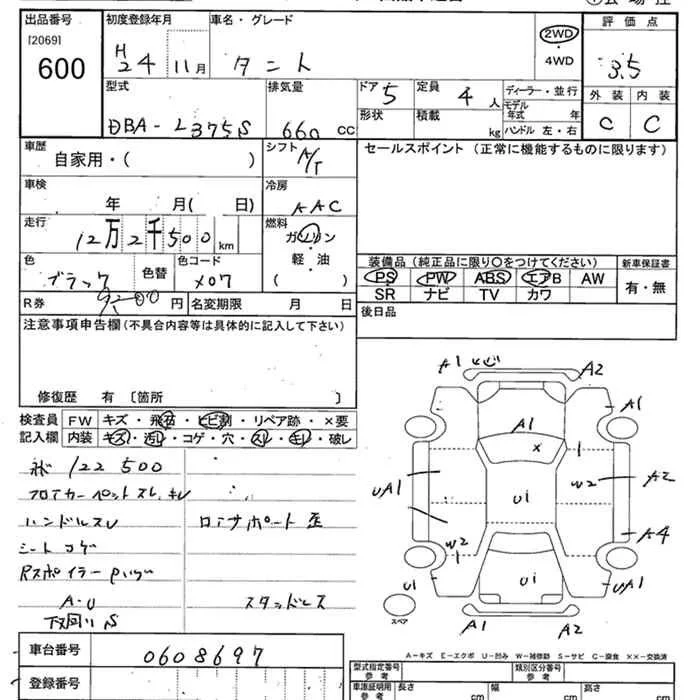 出品番号 初度登録年月 車名・グレード 評価点
[2069] 600 H24 11月 タント 2WD・4WD 3.5
型式 排気量 ドア 5 定員 4人 ディーラー・並行 外装 内装
DBA-L375S 660 CC 形状 積載 kg モデル年式 年 ハンドル 左・右 C C
車歴 自家用・( ) シフト A/T セールスポイント(正常に機能するものに限ります)
車検 年 月( 日) 冷房 AAC
走行 12万2千500km 燃料 ガソリン
軽・油
( )
色 ブラック 色替 色コード X07
装備品(純正品に限り○をつけてください) 新車保証書
PS PW ABS エアB AW 有・無
SR ナビ TV カワ
R券 円 名変期限 月 日 後日品
注意事項申告欄(不具合内容等は具体的に記入して下さい)
修復歴 有 〔箇所 〕
検査員記入欄 FW キズ・飛石・ヒビ割・リペア跡・×要
内装 キズ・汚レ・コゲ・穴・スレ・キレ・破レ
122500
フロアカーペットスレ、キレ
ハンドルスレ ロアサポート歪
シートコゲ
Rスポイラー
A・U スタッドレス
下廻り S
A1 A2
A1 A1
X 1
UA1 U1 W2 A2
W2 1 A4
U1 U1 UA1
スペア A1 A2
A-キズ E-エクボ U-凹み W-補修跡 S-サビ C-腐食 ××-交換済
車台番号 0608697
登録番号
型式指定番号 参考 類別区分番号 参考
車庫証明用 参考 長さ cm 幅 cm 高さ cm